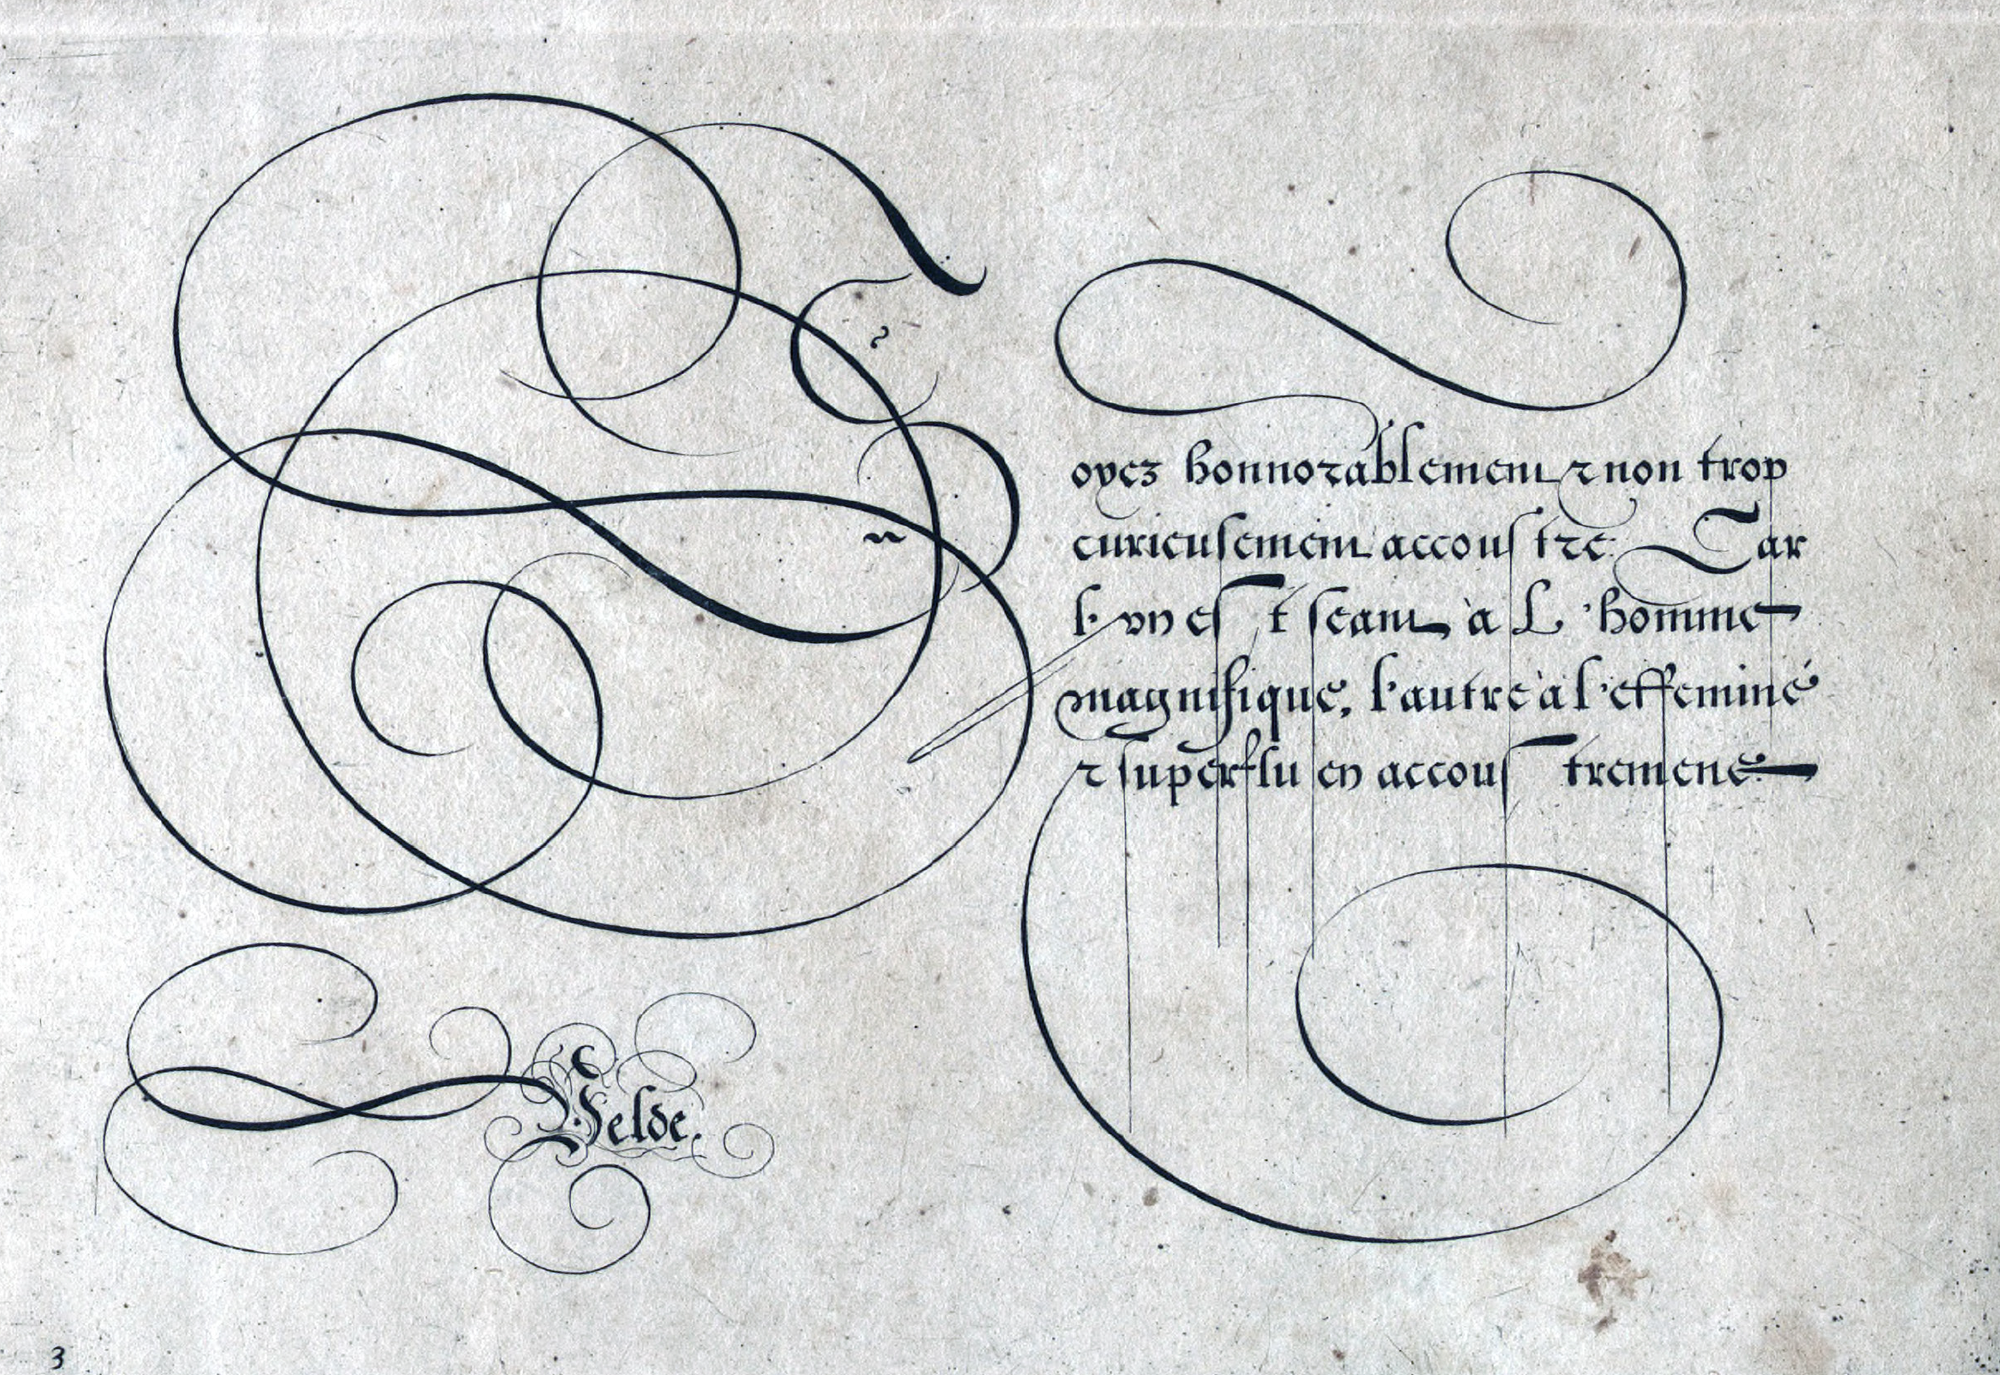 Soyez honnorablement & non trop
curieusement accoustre: Car
l'vn est seant à L'homme
magnifique, l'autre à l'effeminé
& superflu en accoustrement.
Velde.
3